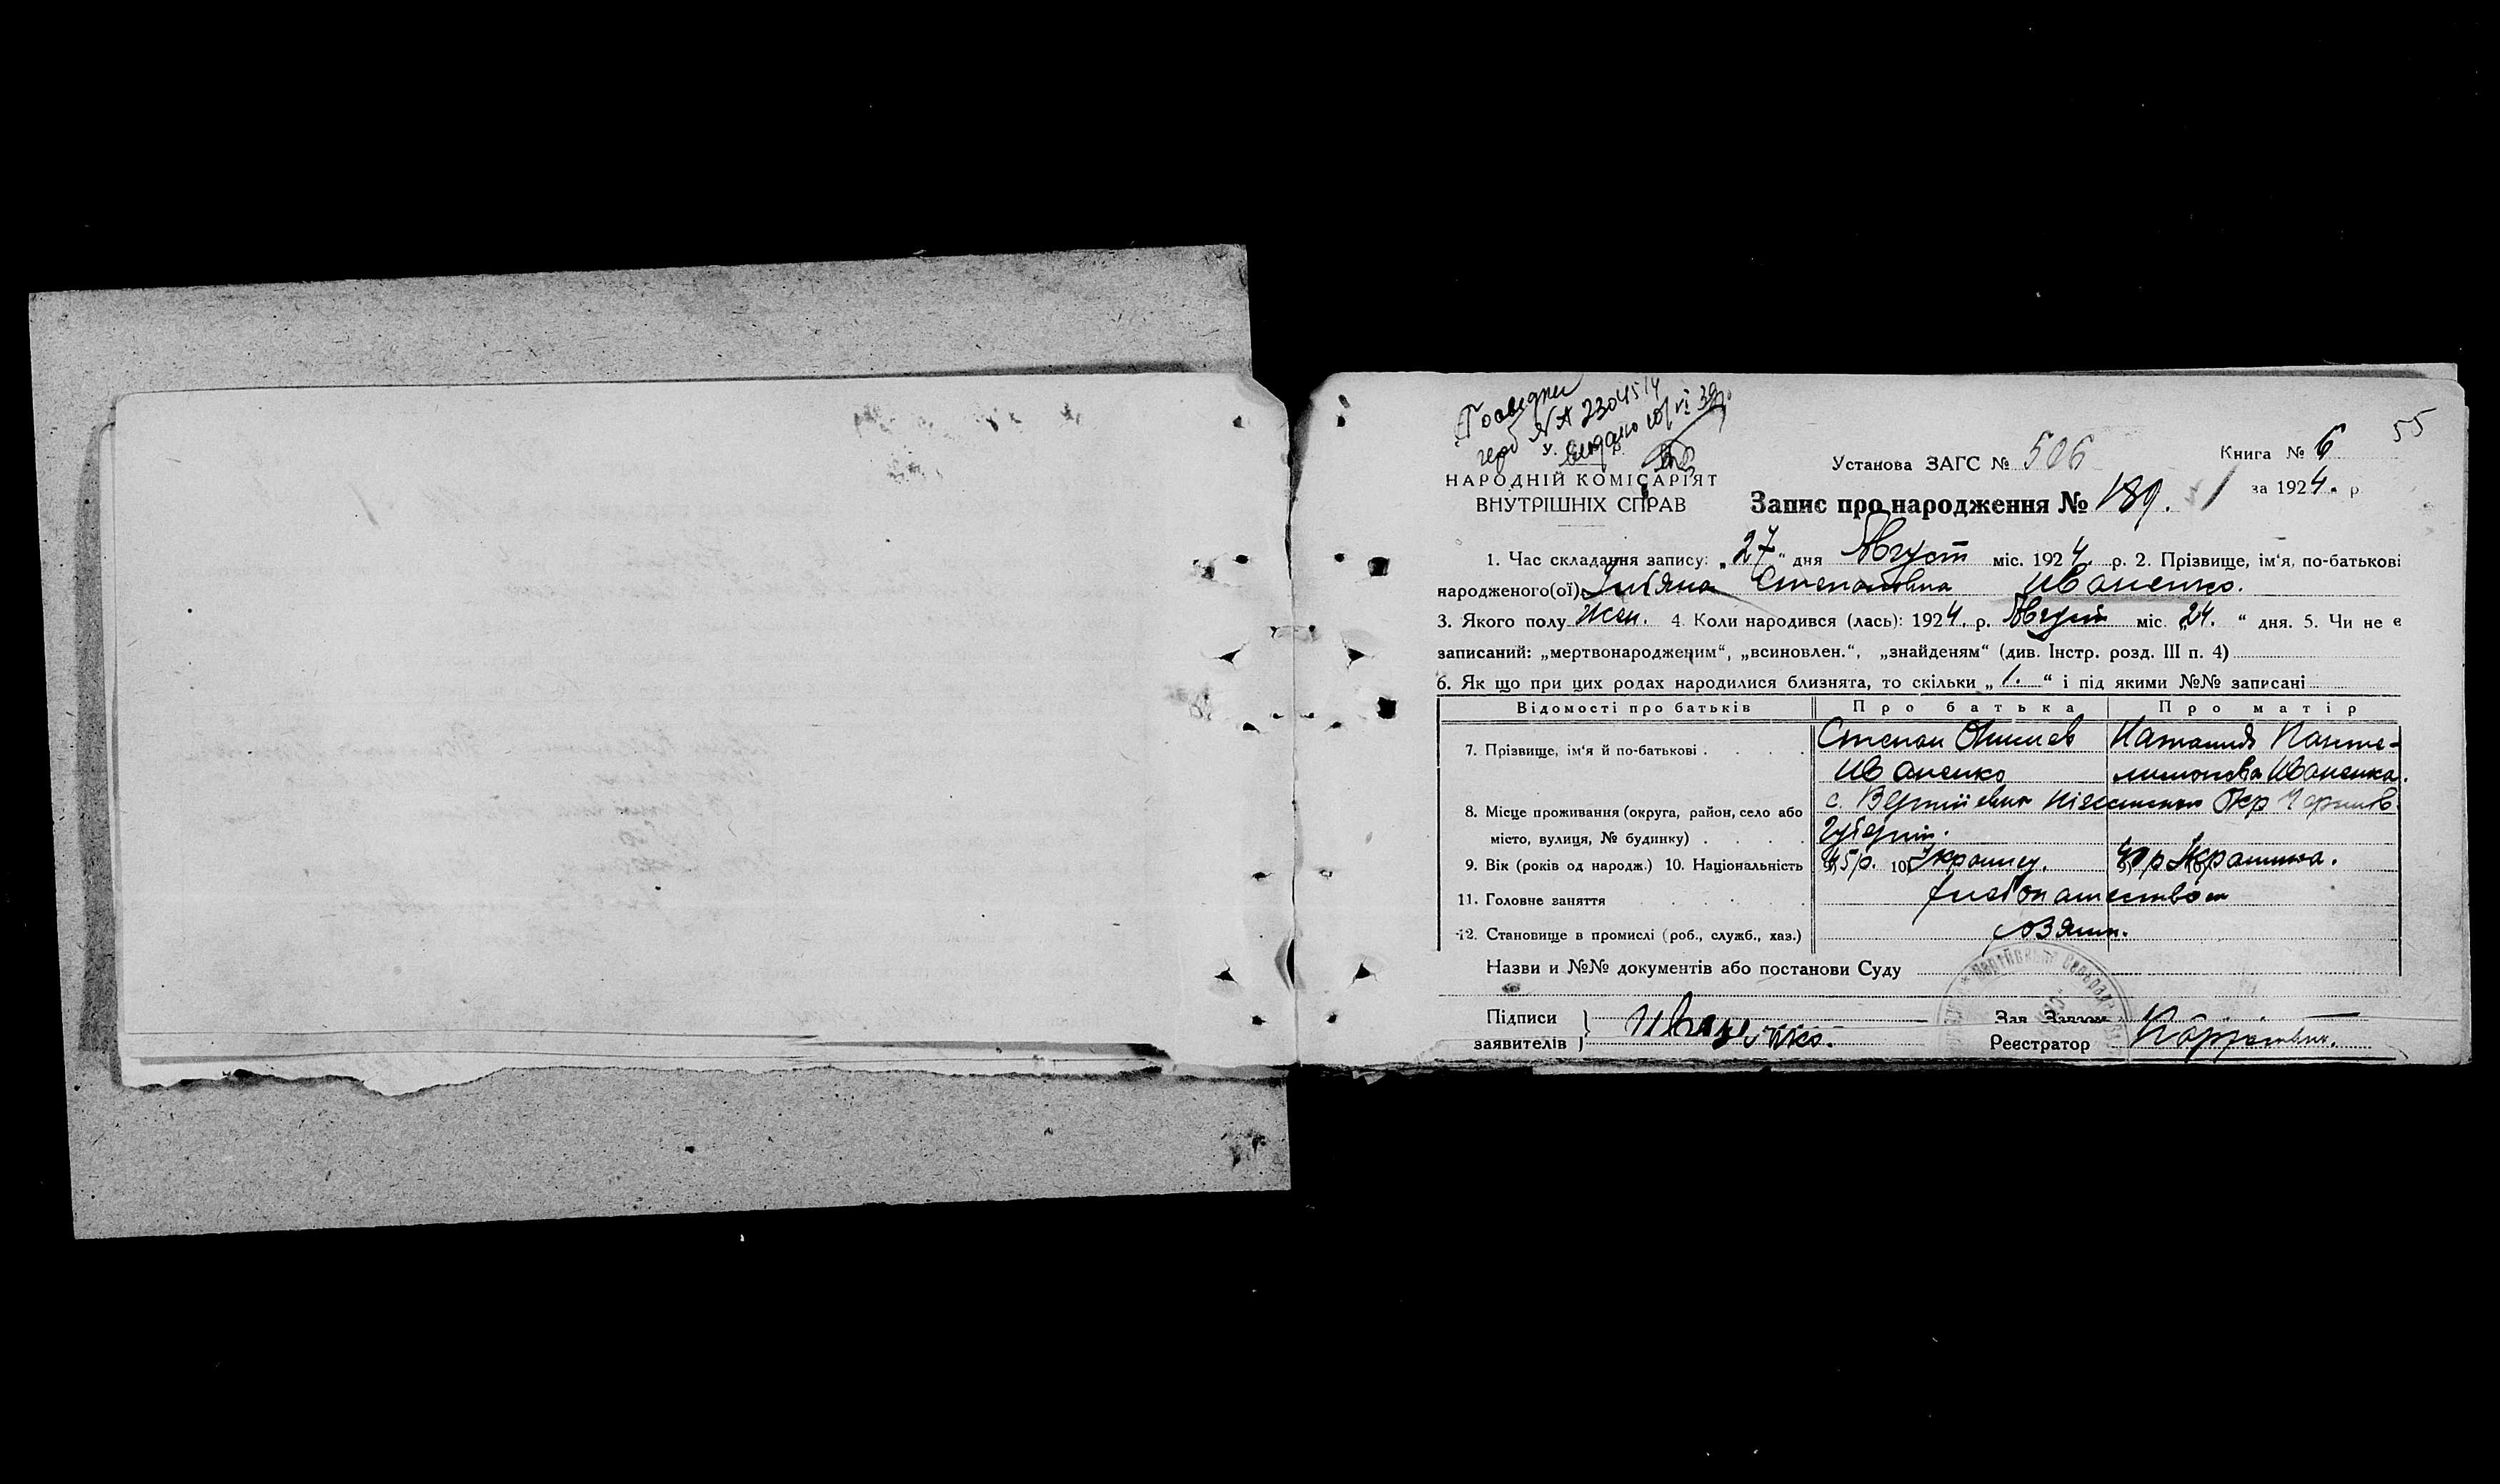 № А 2304514
видано 10/VI 39 р.
55
Книга № 6
Установа ЗАГС № 506
за 1924. р
НАРОДНІЙ КОМІСАРІЯТ
ВНУТРІШНІХ СПРАВ
Запис про народження № 189.
1. Час складання запису: „27“ дня Август міс. 1924. р. 2. Прізвище, ім'я, по-батькові
народженого(ої) Степановна Иваненко.
3. Якого полу жен. 4. Коли народився (лась): 1924. р. Август міс. „24.“ дня. 5. Чи не є
записаний: „мертвонародженим“, „всиновлен.“, „знайденям“ (див. Інстр. розд. III п. 4)
6. Як що при цих родах народилися близнята, то скільки „1.“ і під якими №№ записані
Відомості про батьків Про батька Про матір
7. Прізвище, ім'я й по-батькові . . . . Степан Наталия Панте-
Иваненко лимонова Иваненка.
8. Місце проживання (округа, район, село або с. Вертиевка Окр Чернигов.
місто, вулиця, № будинку) . . . . Губернии.
9. Вік (років од народж.) 10. Національність 9) 45 р. 10) Украинец. 9) 40 р 10) Украинка.
11. Головне заняття . . . . . хлебопашеством
12. Становище в промислі (роб., служб., хаз.) хозяин.
Назви и №№ документів або постанови Суду
Підписи
заявителів } Иваненко.
Зав. Загсом
Реєстратор